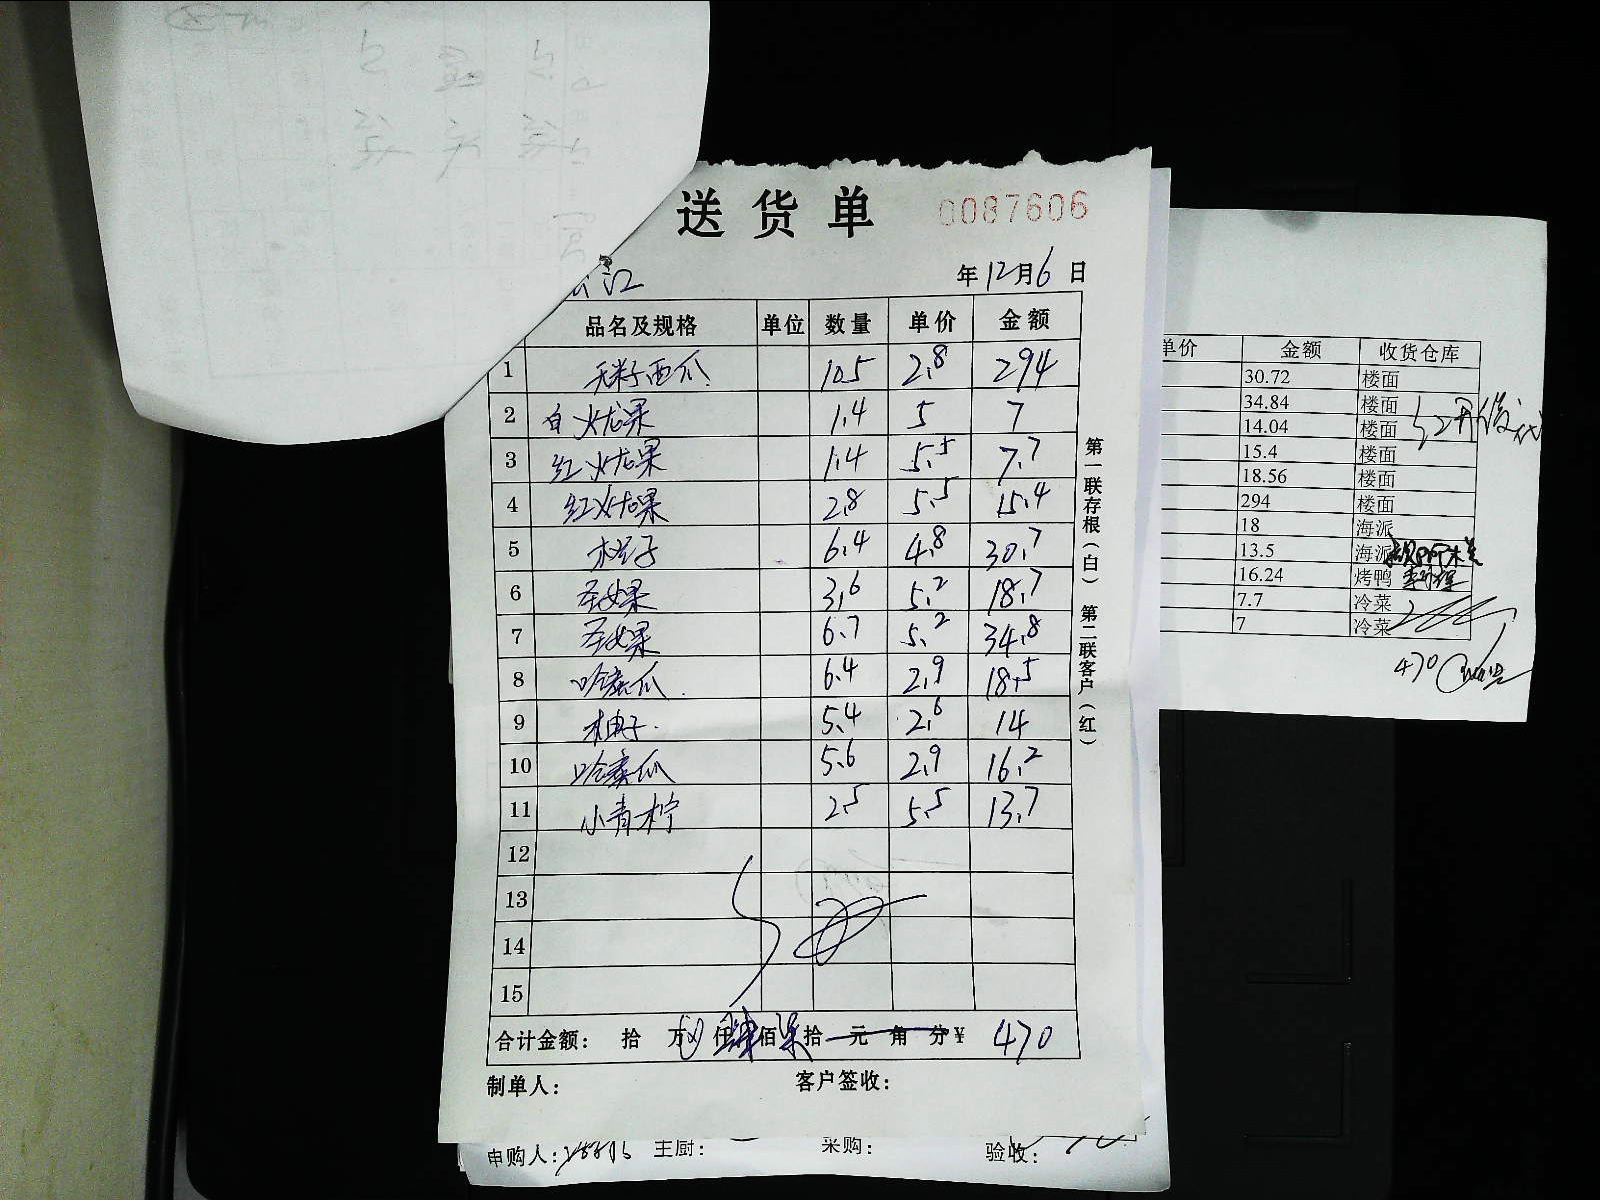 送货单 0087606
江
年12月6日
品名及规格 单位 数量 单价 金额
1 无籽西瓜 105 2.8 294
2 白火龙果 1.4 5 7
3 红火龙果 1.4 5.5 7.7
4 红火龙果 2.8 5.5 15.4
5 橙子 6.4 4.8 30.7
6 圣女果 3.6 5.2 18.7
7 圣女果 6.7 5.2 34.8
8 哈密瓜 6.4 2.9 18.5
9 柚子 5.4 2.6 14
10 哈密瓜 5.6 2.9 16.2
11 小青柠 2.5 5.5 13.7
12
13
14
15
合计金额： 拾 万 仟 肆 佰 柒 拾 元 角 分 ¥ 470
制单人： 客户签收：
第一联存根（白） 第二联客户（红）
申购人： 主厨： 采购： 验收：
单价 金额 收货仓库
30.72 楼面
34.84 楼面
14.04 楼面
15.4 楼面
18.56 楼面
294 楼面
18 海派
13.5 海派
16.24 烤鸭
7.7 冷菜
7 冷菜
470